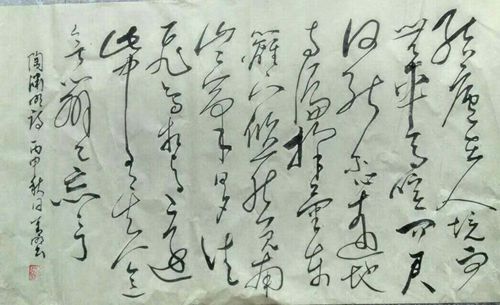 結廬在人境而
無車馬喧問君
何能爾心遠地
自偏採菊東
籬下悠然見南
山山氣日夕佳
飛鳥相與還
此中有真意
欲辨已忘言
陶淵明詩 丙申秋日書